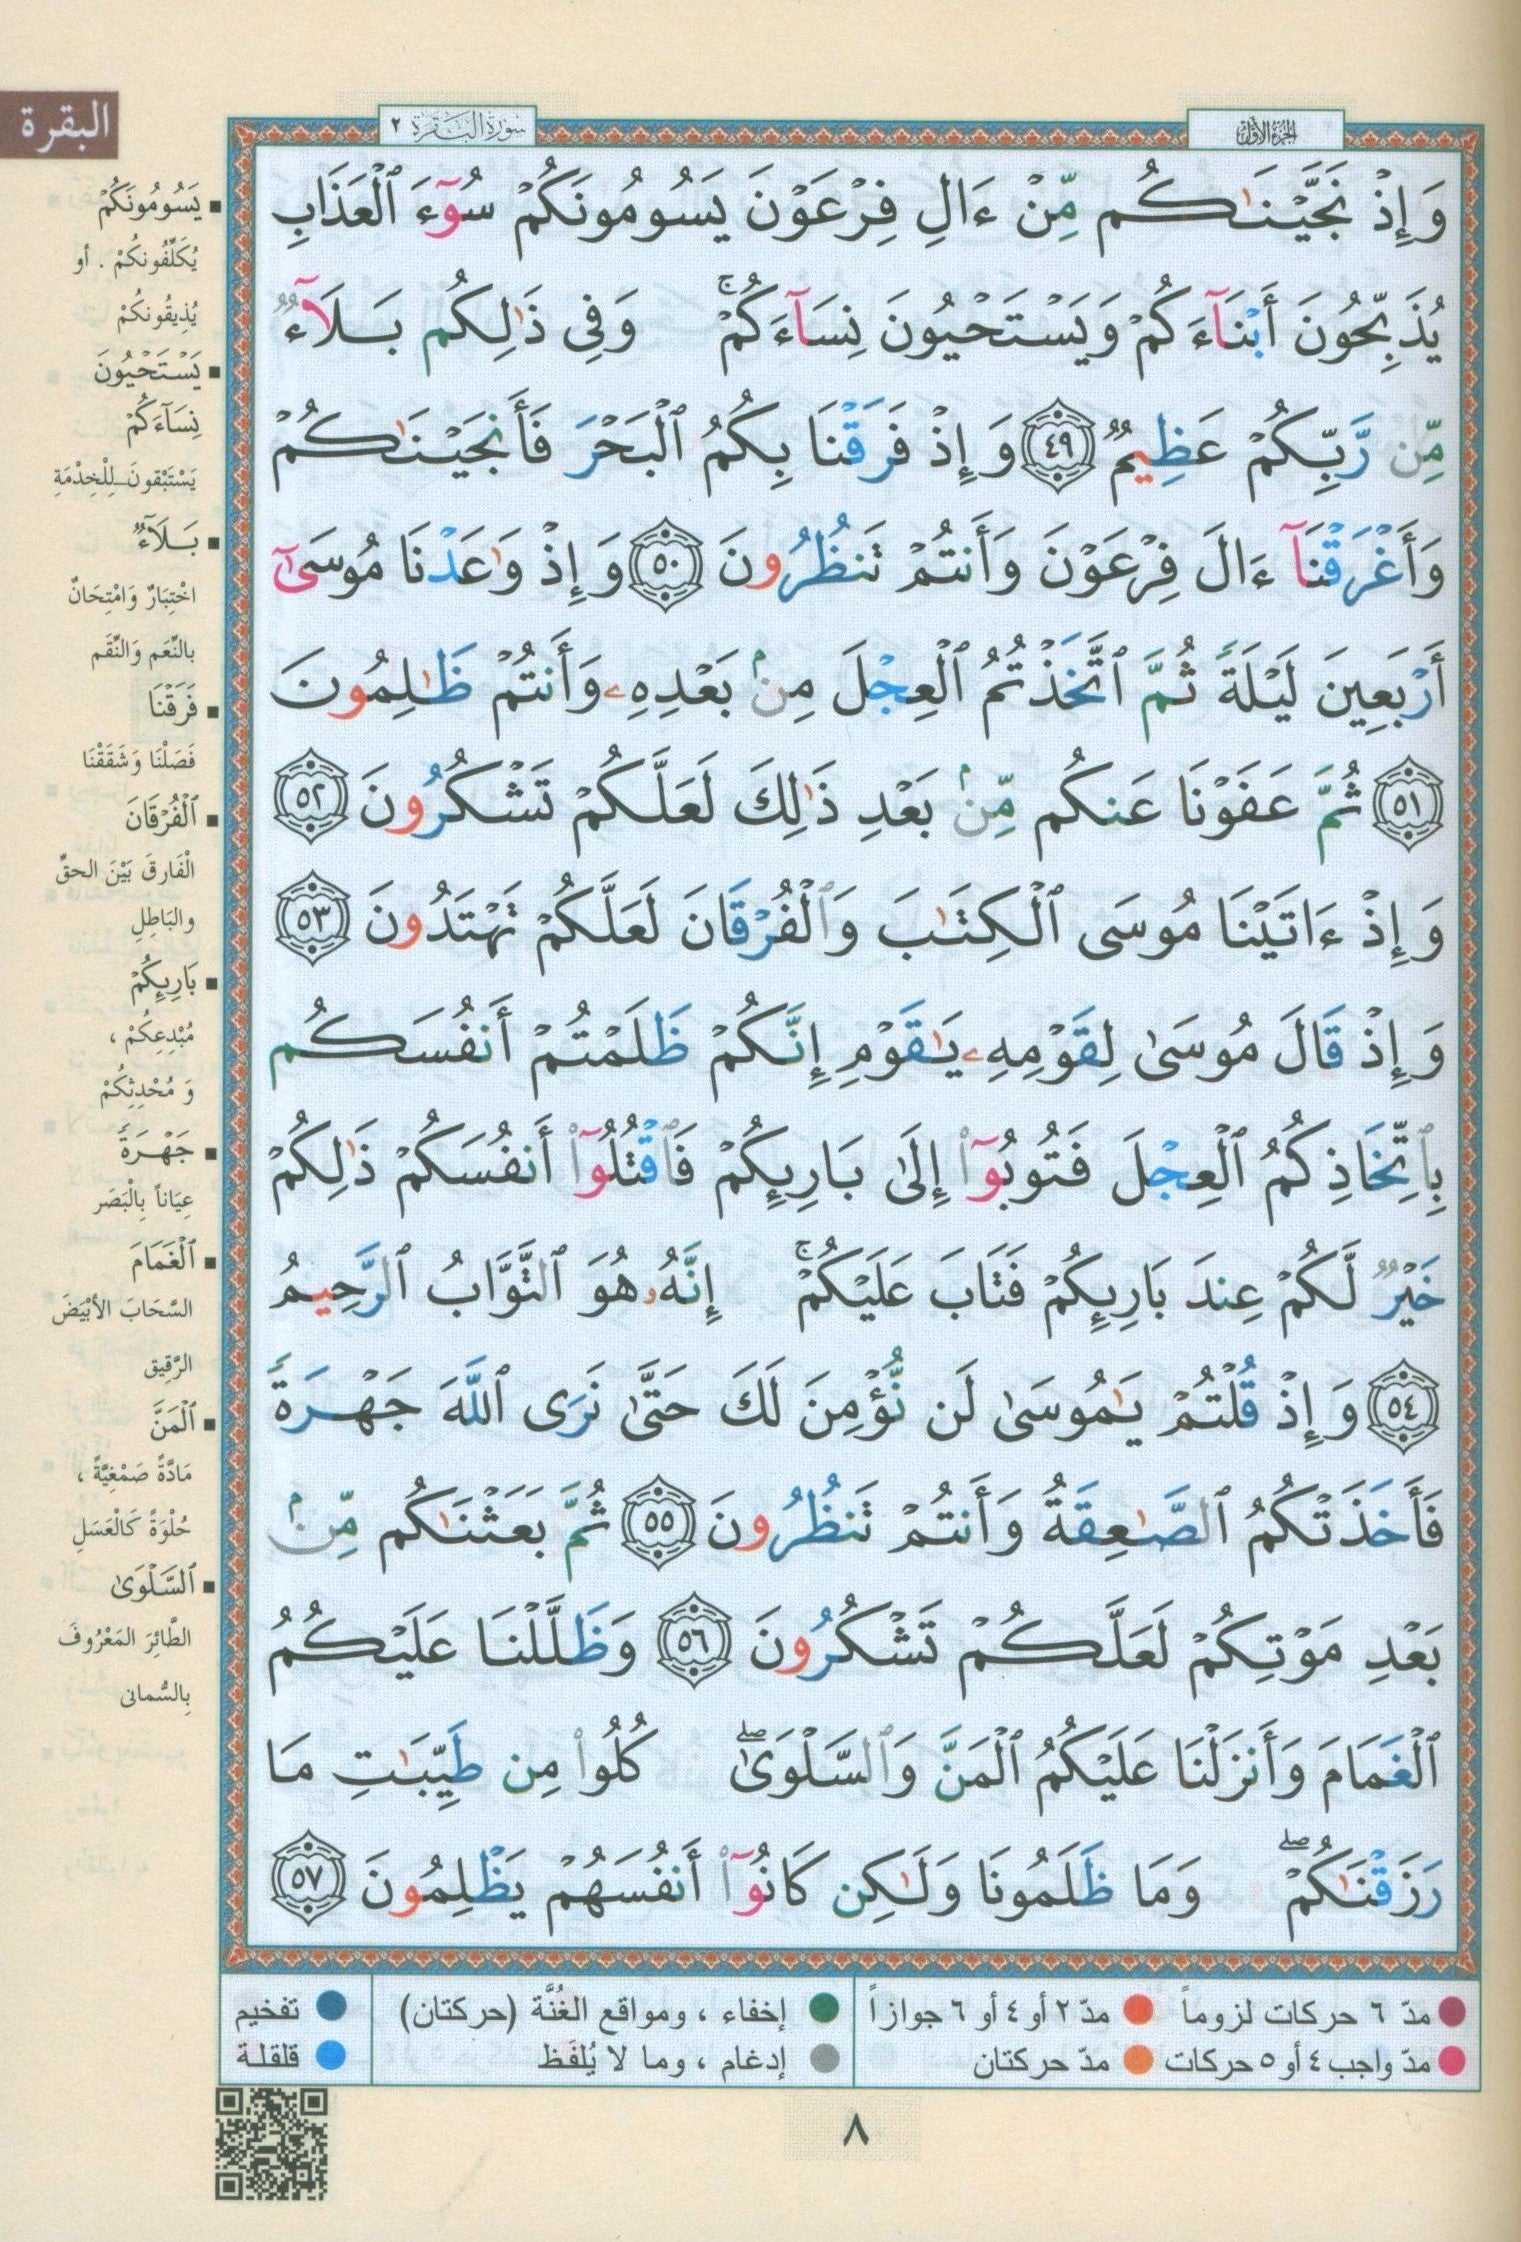 البقرة
الجزء الأول
سورة البقرة ٢
وَإِذْ نَجَّيْنَٰكُم مِّنْ ءَالِ فِرْعَوْنَ يَسُومُونَكُمْ سُوٓءَ ٱلْعَذَابِ
يُذَبِّحُونَ أَبْنَآءَكُمْ وَيَسْتَحْيُونَ نِسَآءَكُمْ ۚ وَفِى ذَٰلِكُم بَلَآءٌ
مِّن رَّبِّكُمْ عَظِيمٌ ٤٩ وَإِذْ فَرَقْنَا بِكُمُ ٱلْبَحْرَ فَأَنجَيْنَٰكُمْ
وَأَغْرَقْنَآ ءَالَ فِرْعَوْنَ وَأَنتُمْ تَنظُرُونَ ٥٠ وَإِذْ وَٰعَدْنَا مُوسَىٰٓ
أَرْبَعِينَ لَيْلَةً ثُمَّ ٱتَّخَذْتُمُ ٱلْعِجْلَ مِنۢ بَعْدِهِۦ وَأَنتُمْ ظَٰلِمُونَ
٥١ ثُمَّ عَفَوْنَا عَنكُم مِّنۢ بَعْدِ ذَٰلِكَ لَعَلَّكُمْ تَشْكُرُونَ ٥٢
وَإِذْ ءَاتَيْنَا مُوسَى ٱلْكِتَٰبَ وَٱلْفُرْقَانَ لَعَلَّكُمْ تَهْتَدُونَ ٥٣
وَإِذْ قَالَ مُوسَىٰ لِقَوْمِهِۦ يَٰقَوْمِ إِنَّكُمْ ظَلَمْتُمْ أَنفُسَكُم
بِٱتِّخَاذِكُمُ ٱلْعِجْلَ فَتُوبُوٓا۟ إِلَىٰ بَارِئِكُمْ فَٱقْتُلُوٓا۟ أَنفُسَكُمْ ذَٰلِكُمْ
خَيْرٌ لَّكُمْ عِندَ بَارِئِكُمْ فَتَابَ عَلَيْكُمْ ۚ إِنَّهُۥ هُوَ ٱلتَّوَّابُ ٱلرَّحِيمُ
٥٤ وَإِذْ قُلْتُمْ يَٰمُوسَىٰ لَن نُّؤْمِنَ لَكَ حَتَّىٰ نَرَى ٱللَّهَ جَهْرَةً
فَأَخَذَتْكُمُ ٱلصَّٰعِقَةُ وَأَنتُمْ تَنظُرُونَ ٥٥ ثُمَّ بَعَثْنَٰكُم مِّنۢ
بَعْدِ مَوْتِكُمْ لَعَلَّكُمْ تَشْكُرُونَ ٥٦ وَظَلَّلْنَا عَلَيْكُمُ
ٱلْغَمَامَ وَأَنزَلْنَا عَلَيْكُمُ ٱلْمَنَّ وَٱلسَّلْوَىٰ ۖ كُلُوا۟ مِن طَيِّبَٰتِ مَا
رَزَقْنَٰكُمْ ۖ وَمَا ظَلَمُونَا وَلَٰكِن كَانُوٓا۟ أَنفُسَهُمْ يَظْلِمُونَ ٥٧
■ يَسُومُونَكُمْ
يُكَلِّفُونكُمْ . أو
يُذِيقُونكُمْ
■ يَسْتَحْيُونَ
نِسَآءَكُمْ
يَسْتَبْقونَ لِلْخِدْمَةِ
■ بَلَآءٌ
اخْتِبَارٌ وَامْتِحَانٌ
بالنِّعَم وَالنِّقَم
■ فَرَقْنَا
فَصَلْنَا وَشَقَقْنَا
■ ٱلْفُرْقَانَ
الْفَارِقَ بَيْنَ الحقِّ
والبَاطِلِ
■ بَارِئِكُمْ
مُبْدِعِكُمْ ،
وَ مُحْدِثِكُمْ
■ جَهْرَةً
عِيَاناً بِالْبَصَر
■ ٱلْغَمَامَ
السَّحَابَ الأبْيَضَ
الرَّقِيق
■ ٱلْمَنَّ
مَادَّةً صَمْغِيَّةً ،
حُلْوَةً كَالْعَسَلِ
■ ٱلسَّلْوَىٰ
الطَّائِرَ المَعْرُوفَ
بِالسُّمانى
مدّ ٦ حركات لزوماً
مدّ ٢ أو ٤ أو ٦ جوازاً
إخفاء ، ومواقع الغُنَّة (حركتان)
تفخيم
مدّ واجب ٤ أو ٥ حركات
مدّ حركتان
إدغام ، وما لا يُلفَظ
قلقلة
٨